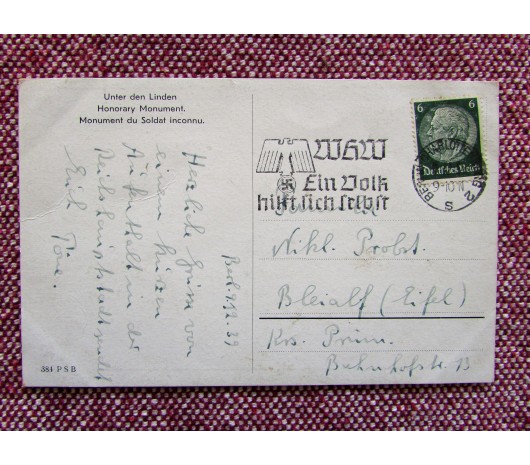 Unter den Linden
Honorary Monument.
Monument du Soldat inconnu.
Herzliche Grüsse von
einem kurzen
Aufenthalt in der
Reichshauptstadt sendet
Euch
384 P S B
WHW
Ein Volk
hilft sich selbst
6 6
Deutsches Reich
BERLIN
S
Nikl. Probst.
Bleialf (Eifel)
Krs. Prüm.
Bahnhofstr. 13